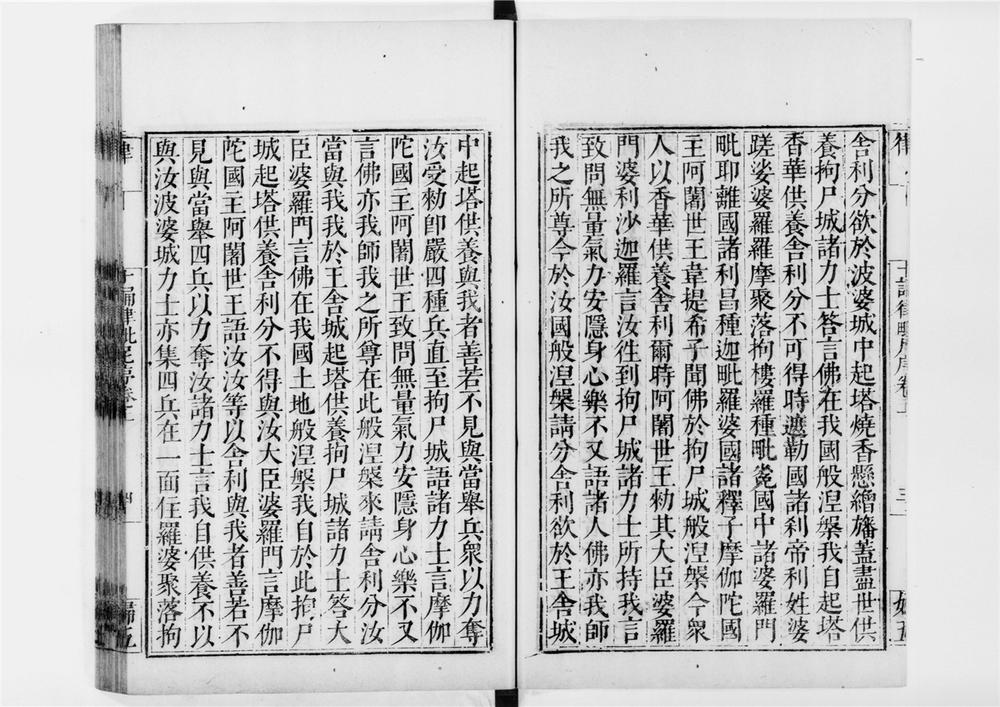 舍利分欲於波婆城中起塔燒香懸繒旛蓋盡世供
養拘尸城諸力士答言佛在我國般涅槃我自起塔
香華供養舍利分不可得時遮勒國諸刹帝利姓婆
蹉婆婆羅羅摩聚落拘樓羅種毗㝹國中諸婆羅門
毗耶離國諸利昌種迦毗羅婆國諸釋子摩伽陀國
主阿闍世王韋提希子聞佛於拘尸城般涅槃今衆
人以香華供養舍利爾時阿闍世王勑其大臣婆羅
門婆利沙迦羅言汝徃到拘尸城諸力士所持我言
致問無量氣力安隱身心樂不又語諸人佛亦我師
我之所尊今於汝國般涅槃請分舍利欲於王舍城
中起塔供養與我者善若不見與當舉兵衆以力奪
汝受勑卽嚴四種兵直至拘尸城語諸力士言摩伽
陀國主阿闍世王致問無量氣力安隱身心樂不又
言佛亦我師我之所尊在此般涅槃來請舍利分汝
當與我我於王舍城起塔供養拘尸城諸力士答大
臣婆羅門言佛在我國土地般涅槃我自於此拘尸
城起塔供養舍利分不得與汝大臣婆羅門言摩伽
陀國主阿闍世王語汝汝等以舍利與我者善若不
見與當舉四兵以力奪汝諸力士言我自供養不以
與汝波婆城力士亦集四兵在一面住羅婆聚落拘